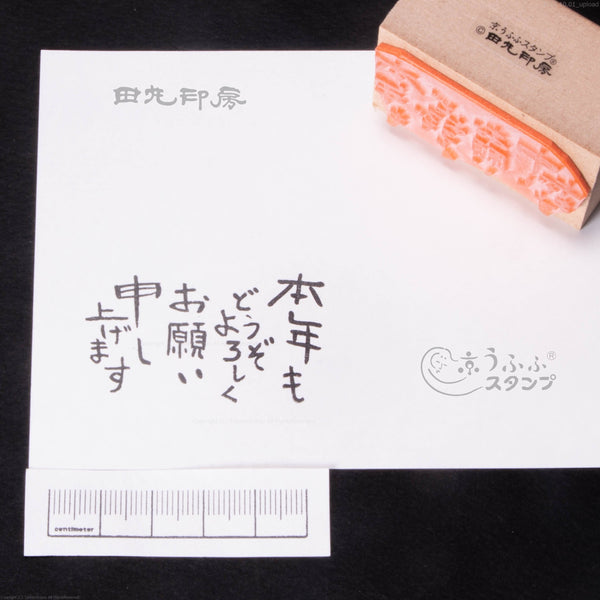 京うふふスタンプ®
© 田丸印房
田丸印房
本年も
どうぞ
よろしく
お願い
申し
上げます
京うふふ®
スタンプ
centimeter